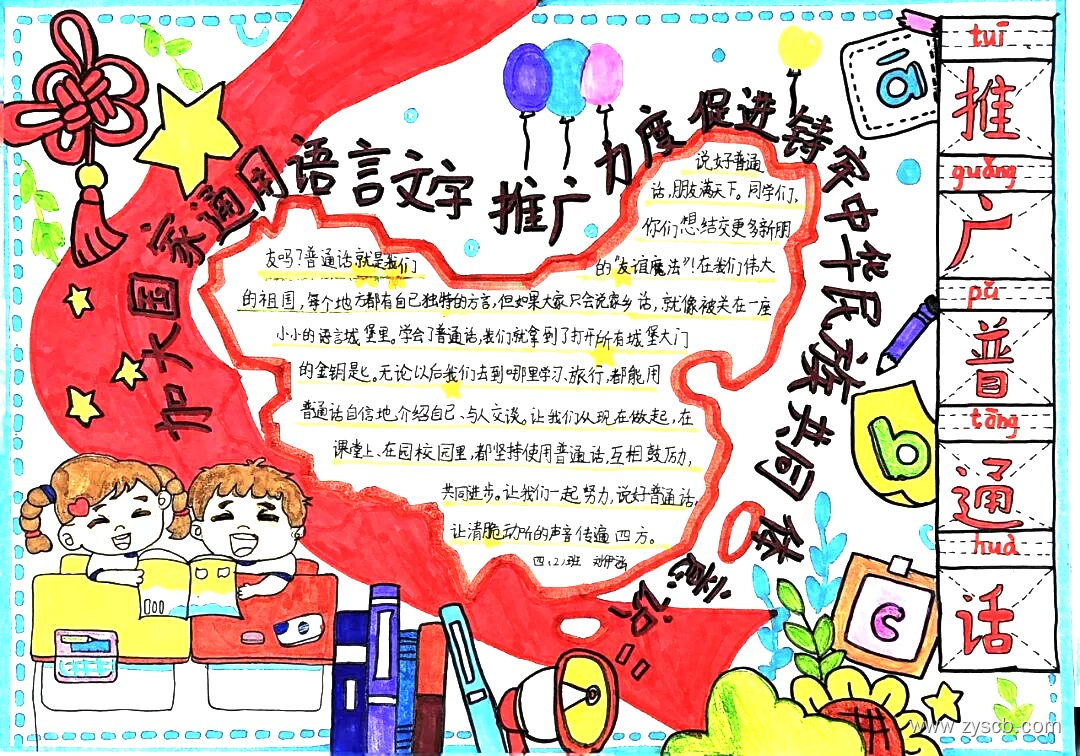 加大国家通用语言文字推广力度促进铸牢中华民族共同体意识
说好普通
话,朋友满天下。同学们,
你们想结交更多新朋
友吗?普通话,就是我们
的"友谊魔法"!在我们伟大
的祖国,每个地方都有自己独特的方言,但如果大家只会说家乡话,就像被关在一座
小小的语言城堡里。学会了普通话,我们就拿到了打开所有城堡大门
的金钥匙。无论以后我们去到哪里学习、旅行,都能用
普通话自信地介绍自己、与人交谈。让我们从现在做起,在
课堂上、在园校园里,都坚持使用普通话,互相鼓励,
共同进步。让我们一起努力,说好普通话,
让清脆动听的声音传遍四方。
四.(2)班
tuī
推
guǎng
广
pǔ
普
tōng
通
huà
话
ā
b
c
www.zyscb.com